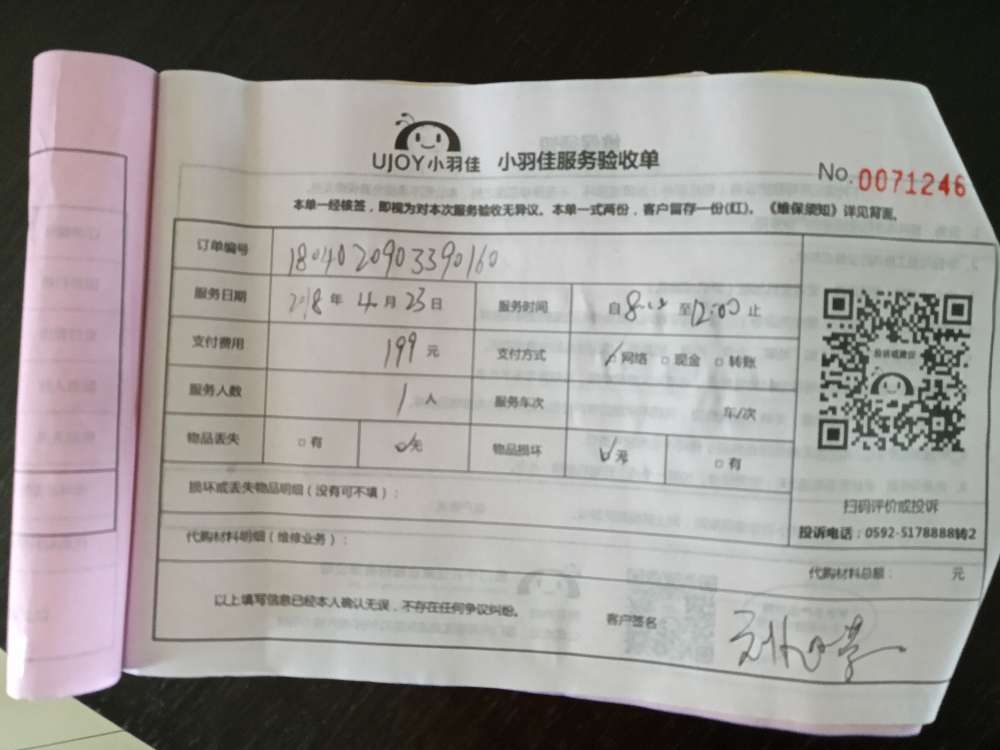 UJOY小羽佳 小羽佳服务验收单
No. 0071246
本单一经核签，即视为对本次服务验收无异议。本单一式两份，客户留存一份(红)。《维保须知》详见背面。
订单编号 1804020903390160
服务日期 2018年4月23日 服务时间 自8:00至12:00止
支付费用 199元 支付方式 ✓网络 □现金 □转账
服务人数 1人 服务车次 车/次
物品丢失 □有 ✓无 物品损坏 ✓无 □有
投诉或建议
损坏或丢失物品明细（没有可不填）：
扫码评价或投诉
投诉电话：0592-5178888转2
代购材料明细（维修业务）：
代购材料总额： 元
以上填写信息已经本人确认无误，不存在任何争议纠纷。 客户签名：